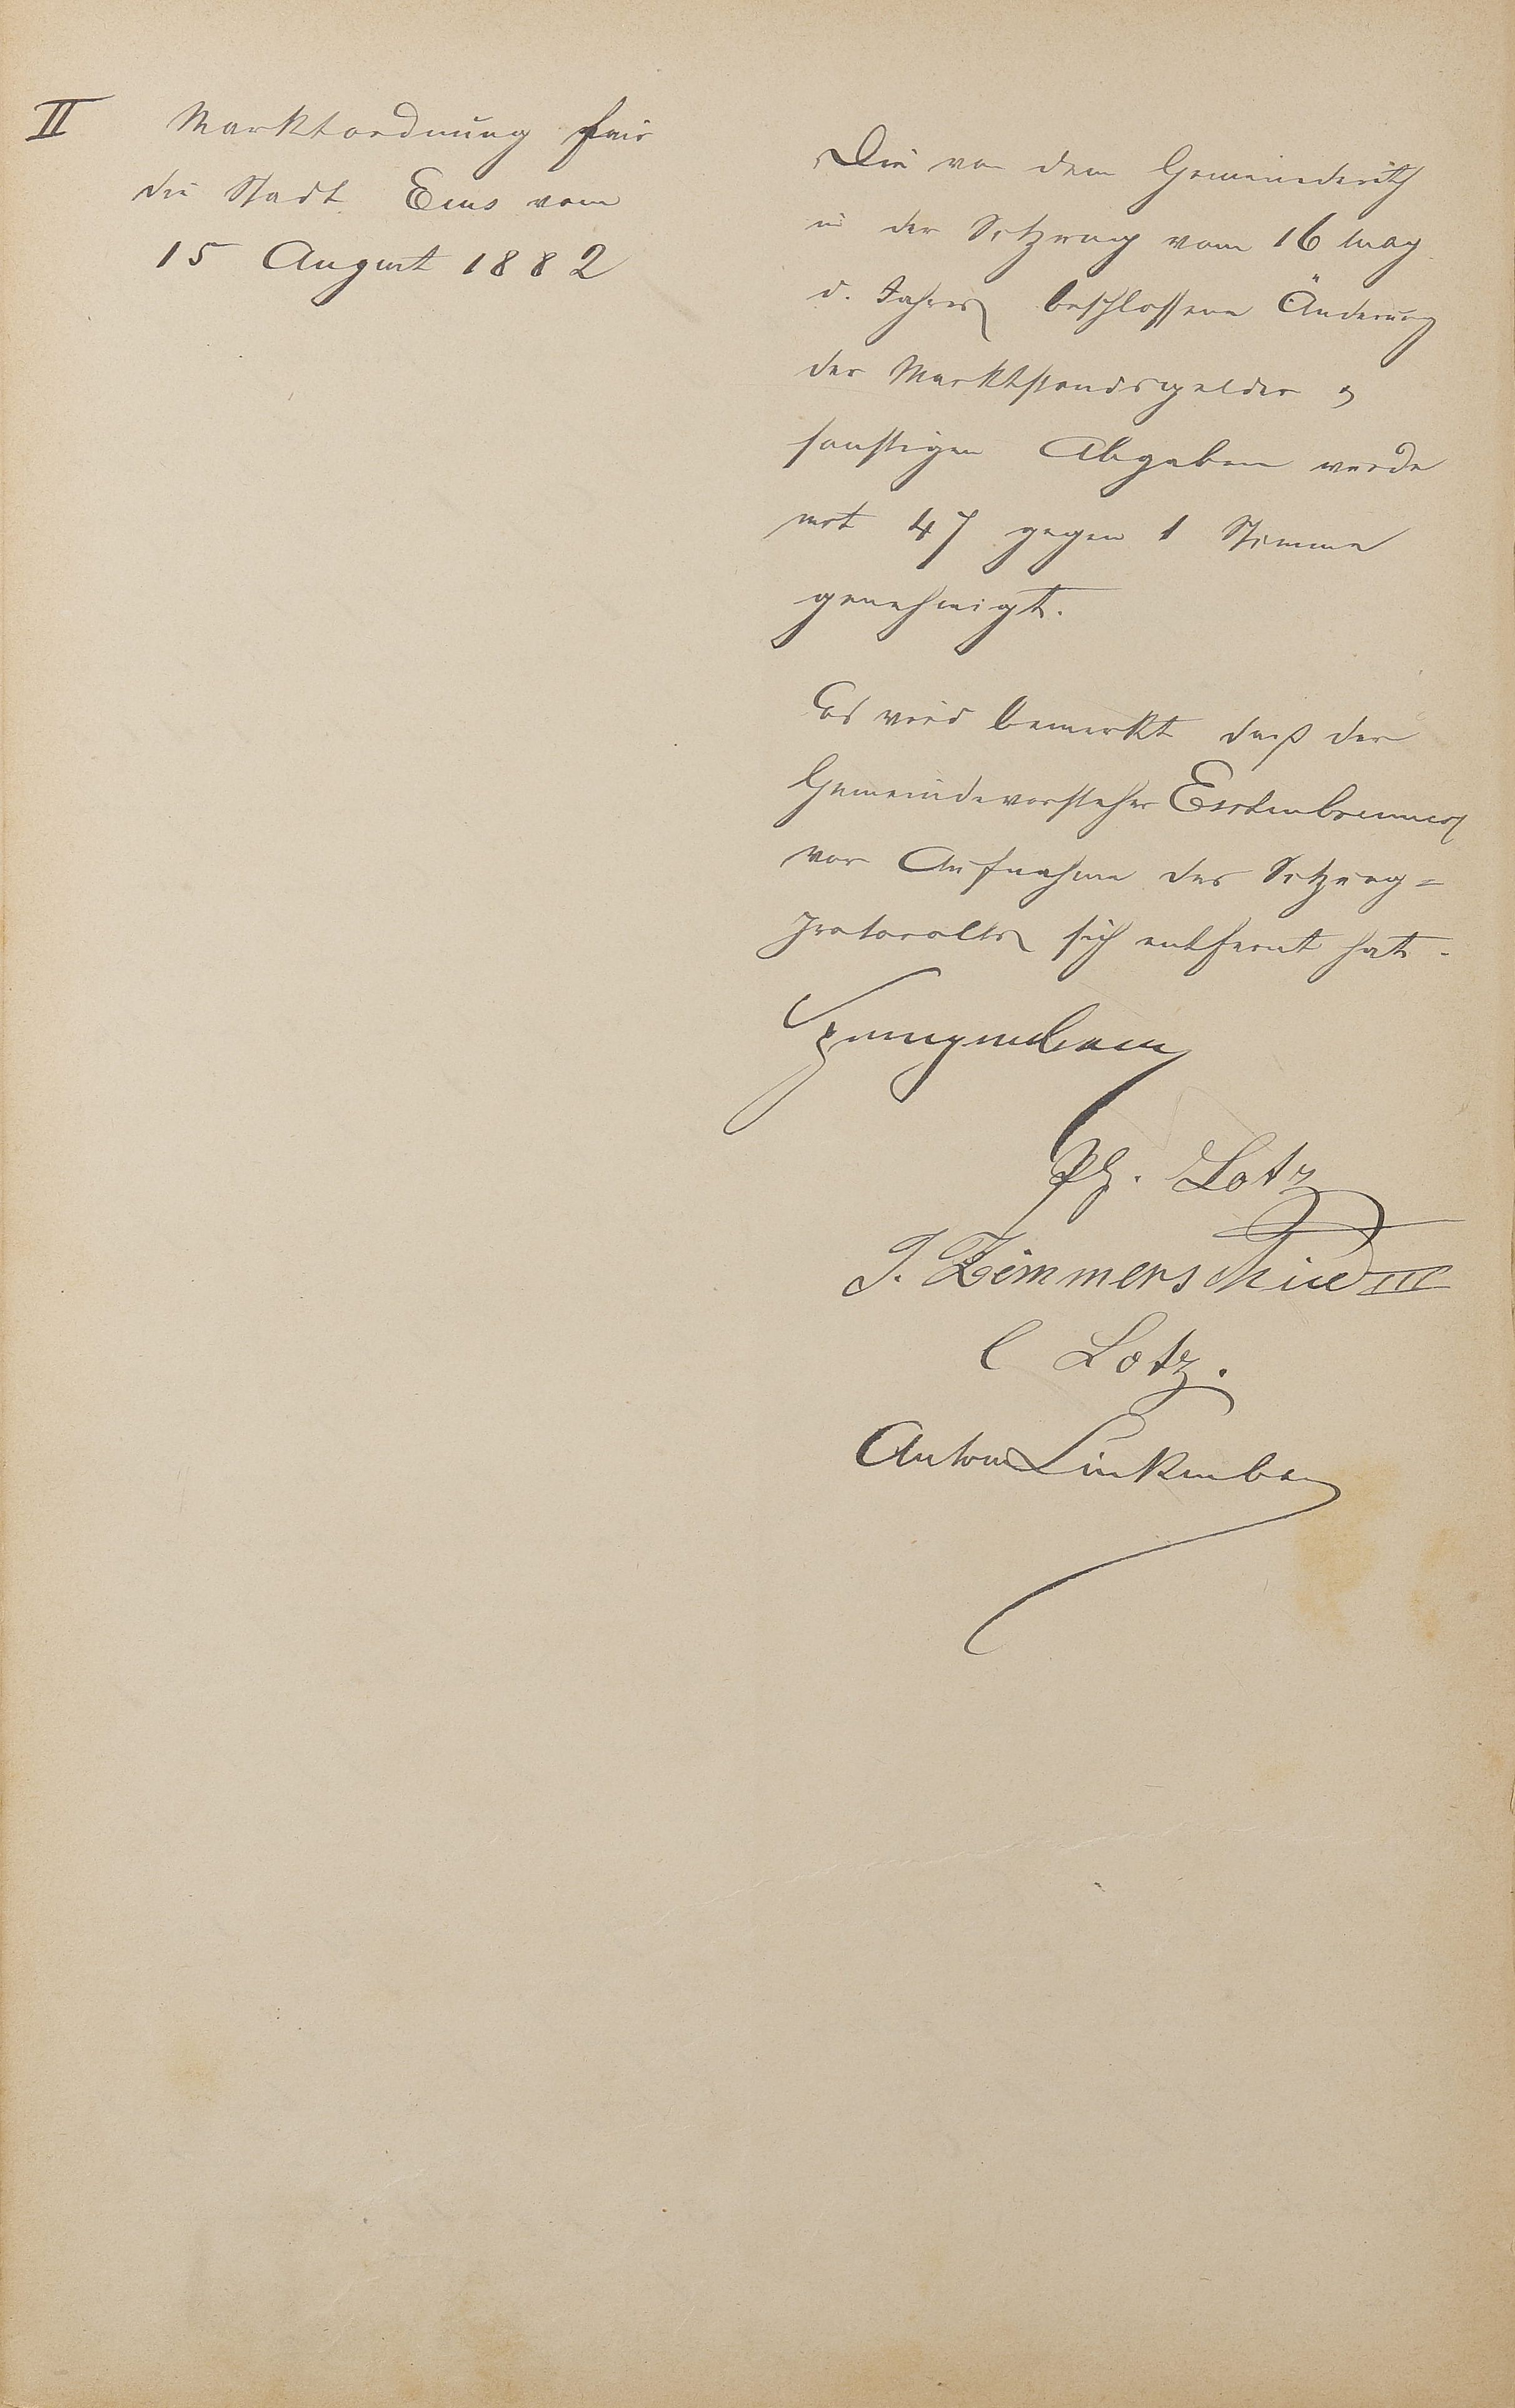 II Marktordnung für
die Stadt Ems vom
15 August 1882
Die von dem Gemeinderath
in der Sitzung vom 16 May
d. Jahres beschlossene Änderung
der Marktstandsgelder &
sonstigen Abgaben werde
mit 47 gegen 1 Stimme
genehmigt.
Es wird bemerkt daß der
Gemeindevorsteher
vor Aufnahme des Sitzung=
protocolls sich entfernt hat.
Spangenberg
Ph. Lotz
J. Zimmerschied III
C Lotz.
Anton Linkenbach